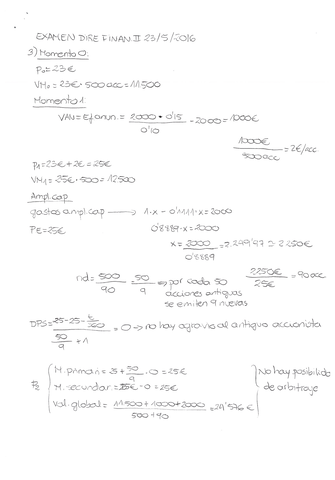 EXAMEN DIRE FINAN II 23/5/2016
3) Momento 0:
P₀=23€
VM₀ = 23€ · 500 acc = 11500
Momento 1:
VAN = Ef. anun. = 2000 · 0'15 / 0'10 - 2000 = 1000€
1000€ / 500 acc = 2€/acc
P₁=23€+2€ = 25€
VM₁ = 25€ · 500 = 12500
Ampl. cap
gastos ampl. cap → 1·x - 0'1111·x = 2000
PE=25€ 0'8889·x = 2000
x = 2000 / 0'8889 = 2.249'97 ≈ 2250€
nd = 500 / 90 = 50 / 9 ⇒ por cada 50 acciones antiguas se emiten 9 nuevas
2250€ / 25€ = 90 acc
= 0 → no hay agravio al antiguo accionista
50 / 9 + 1
M. primario
M. secundar. = 25€ - 0 = 25€
Val. global = 11500 + 1000 + 2000 / 500 + 90 = 24'576€
No hay posibilidad de arbitraje